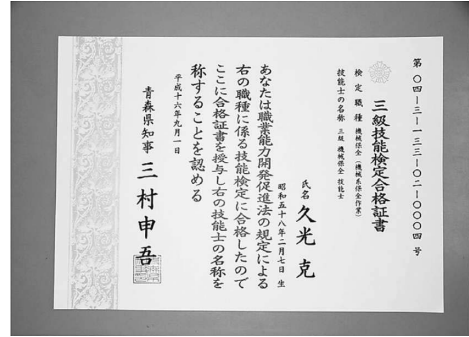 第〇四ー三ー一三三ー〇二ー〇〇〇四号
三級技能検定合格証書
検定職種 機械保全(機械系保全作業)
技能士の名称 三級 機械保全 技能士
氏名 久光 克
昭和五十八年二月七日 生
あなたは職業能力開発促進法の規定による
右の職種に係る技能検定に合格したので
ここに合格証書を授与し右の技能士の名称を
称することを認める
平成十六年九月一日
青森県知事 三村申吾